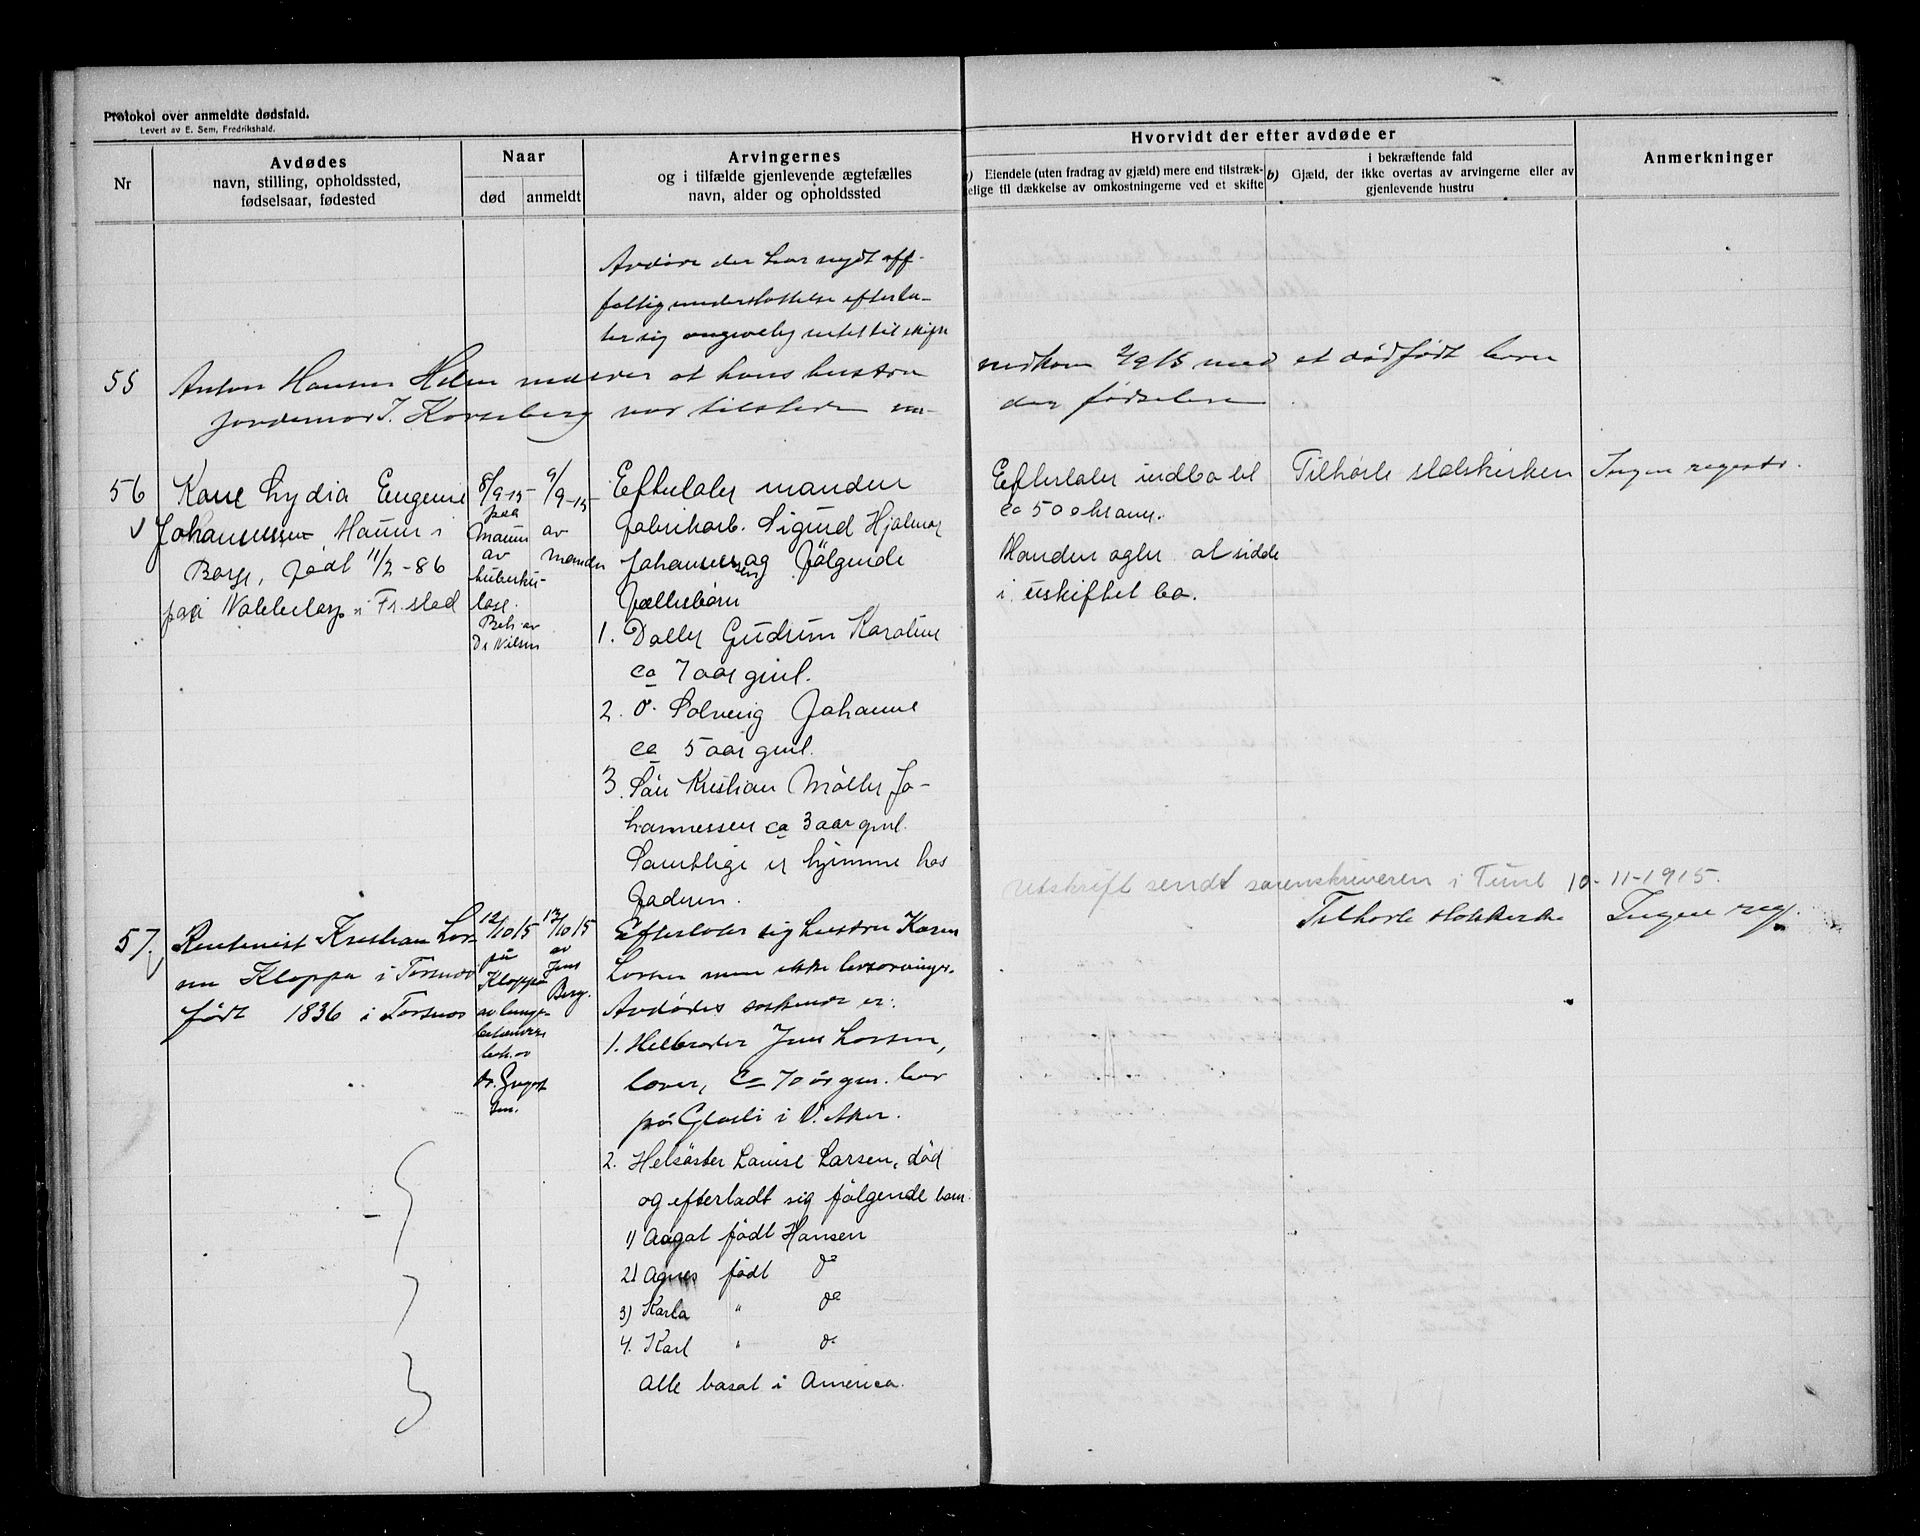 Protokol over anmeldte dødsfald.
Levert av E. Sem, Fredrikshald.
Nr
Avdødes
navn, stilling, opholdssted,
fødselsaar, fødested
Naar
død
anmeldt
Arvingernes
og i tilfælde gjenlevende ægtefælles
navn, alder og opholdssted
Hvorvidt der efter avdøde er
a) Eiendele (uten fradrag av gjæld) mere end tilstræk-
kelige til dækkelse av omkostningerne ved et skifte
i bekræftende fald
b) Gjæld, der ikke overtas av arvingerne eller av
gjenlevende hustru
Anmerkninger
Avdøde der har nydt off-
fattigunderstøttelse efterla-
ter sig angivelig intet til skifte
55 Anton Hansen Holm melder at hans hustru
nedkom 2/9 15 med et dødfødt barn
jordemor J. Korseberg var tilstede un-
der fødselen
56
Kaue Lydia Eugenie
Johannessen Maum i
Borge, født 11/2 -86
paa i Fr.stad
8/9-15
paa
Maum
av
tuberku-
lose.
Beh. av
Dr Nilsen
9/9-15
av
manden
Efterlater manden
fabrikarb. Sigurd Hjalmar
Johannessen og følgende
fællesbørn
1. Datter Gudrun Karoline
ca 7 aar gml.
2. D. Solveig Johanne
ca 5 aar gml.
3. Søn Kristian Møller Jo-
hannessen ca 3 aar gml.
Samtlige er hjemme hos
faderen.
Efterlater indbo til
ca 500 kroner.
Manden agter at sidde
i uskiftet bo.
Tilhørte statskirken
Ingen registr.
Utskrift sendt sorenskriveren i Tune 10-11-1915.
57.
Rentenist Kristian Lar-
sen Kloppa i Torsnes
født 1836 i Torsnes
12/10 15
på
Kloppa
av lunge-
betændelse
beh. av
dr. Gregert
sen.
13/10 15
av
Jens
Berg.
Efterlater sig hustru Karen
Larsen men ikke livsarvinger.
Avdødes søskende er:
1. Helbroder Jens Larsen,
lever, ca 70 år gml. bor
på i V. Aker.
2. Helsøster Lovise Larsen, død
og efterladt sig følgende barn
1) Aagot født Hansen
2) Agnes født do
3) Karla " do
4. Karl " do
Alle bosat i America.
Tilhørte statskirke
Ingen reg.